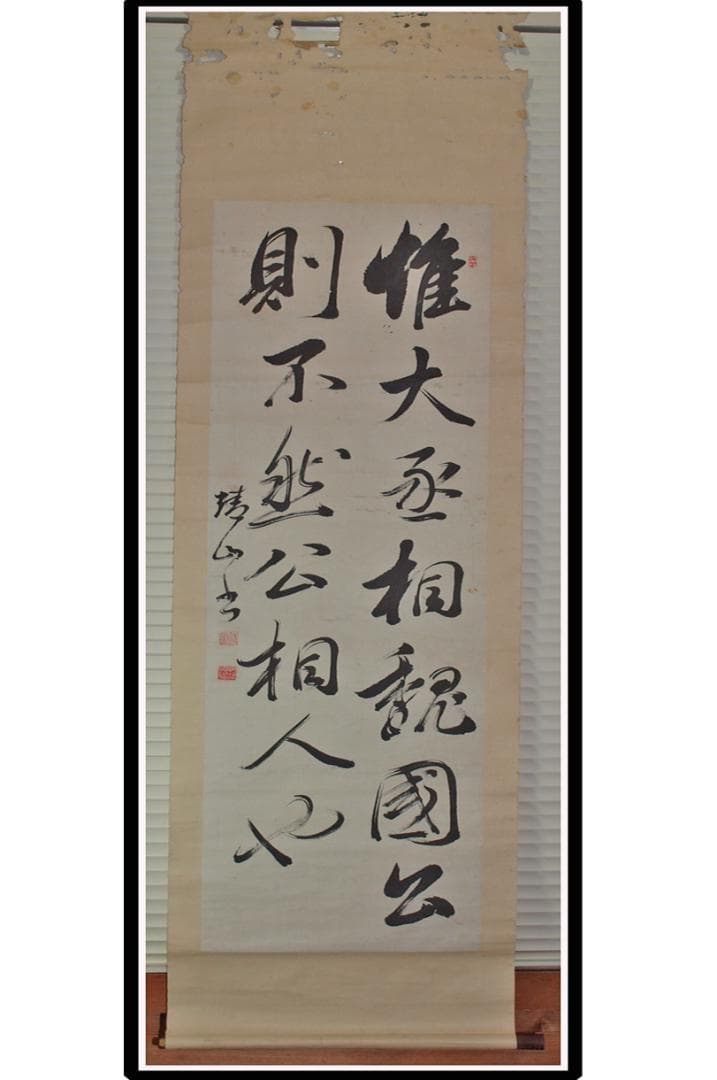 惟大丞相魏國公
則不然公相人也
靖山書